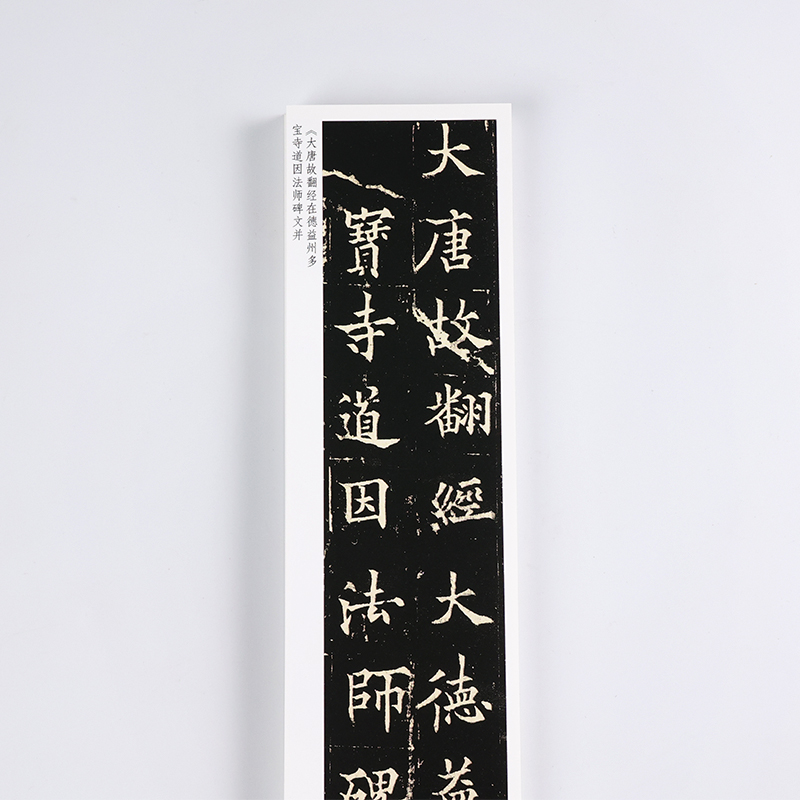 大唐故翻經大德益
寶寺道因法師碑
《大唐故翻经在德益州多
宝寺道因法师碑文并